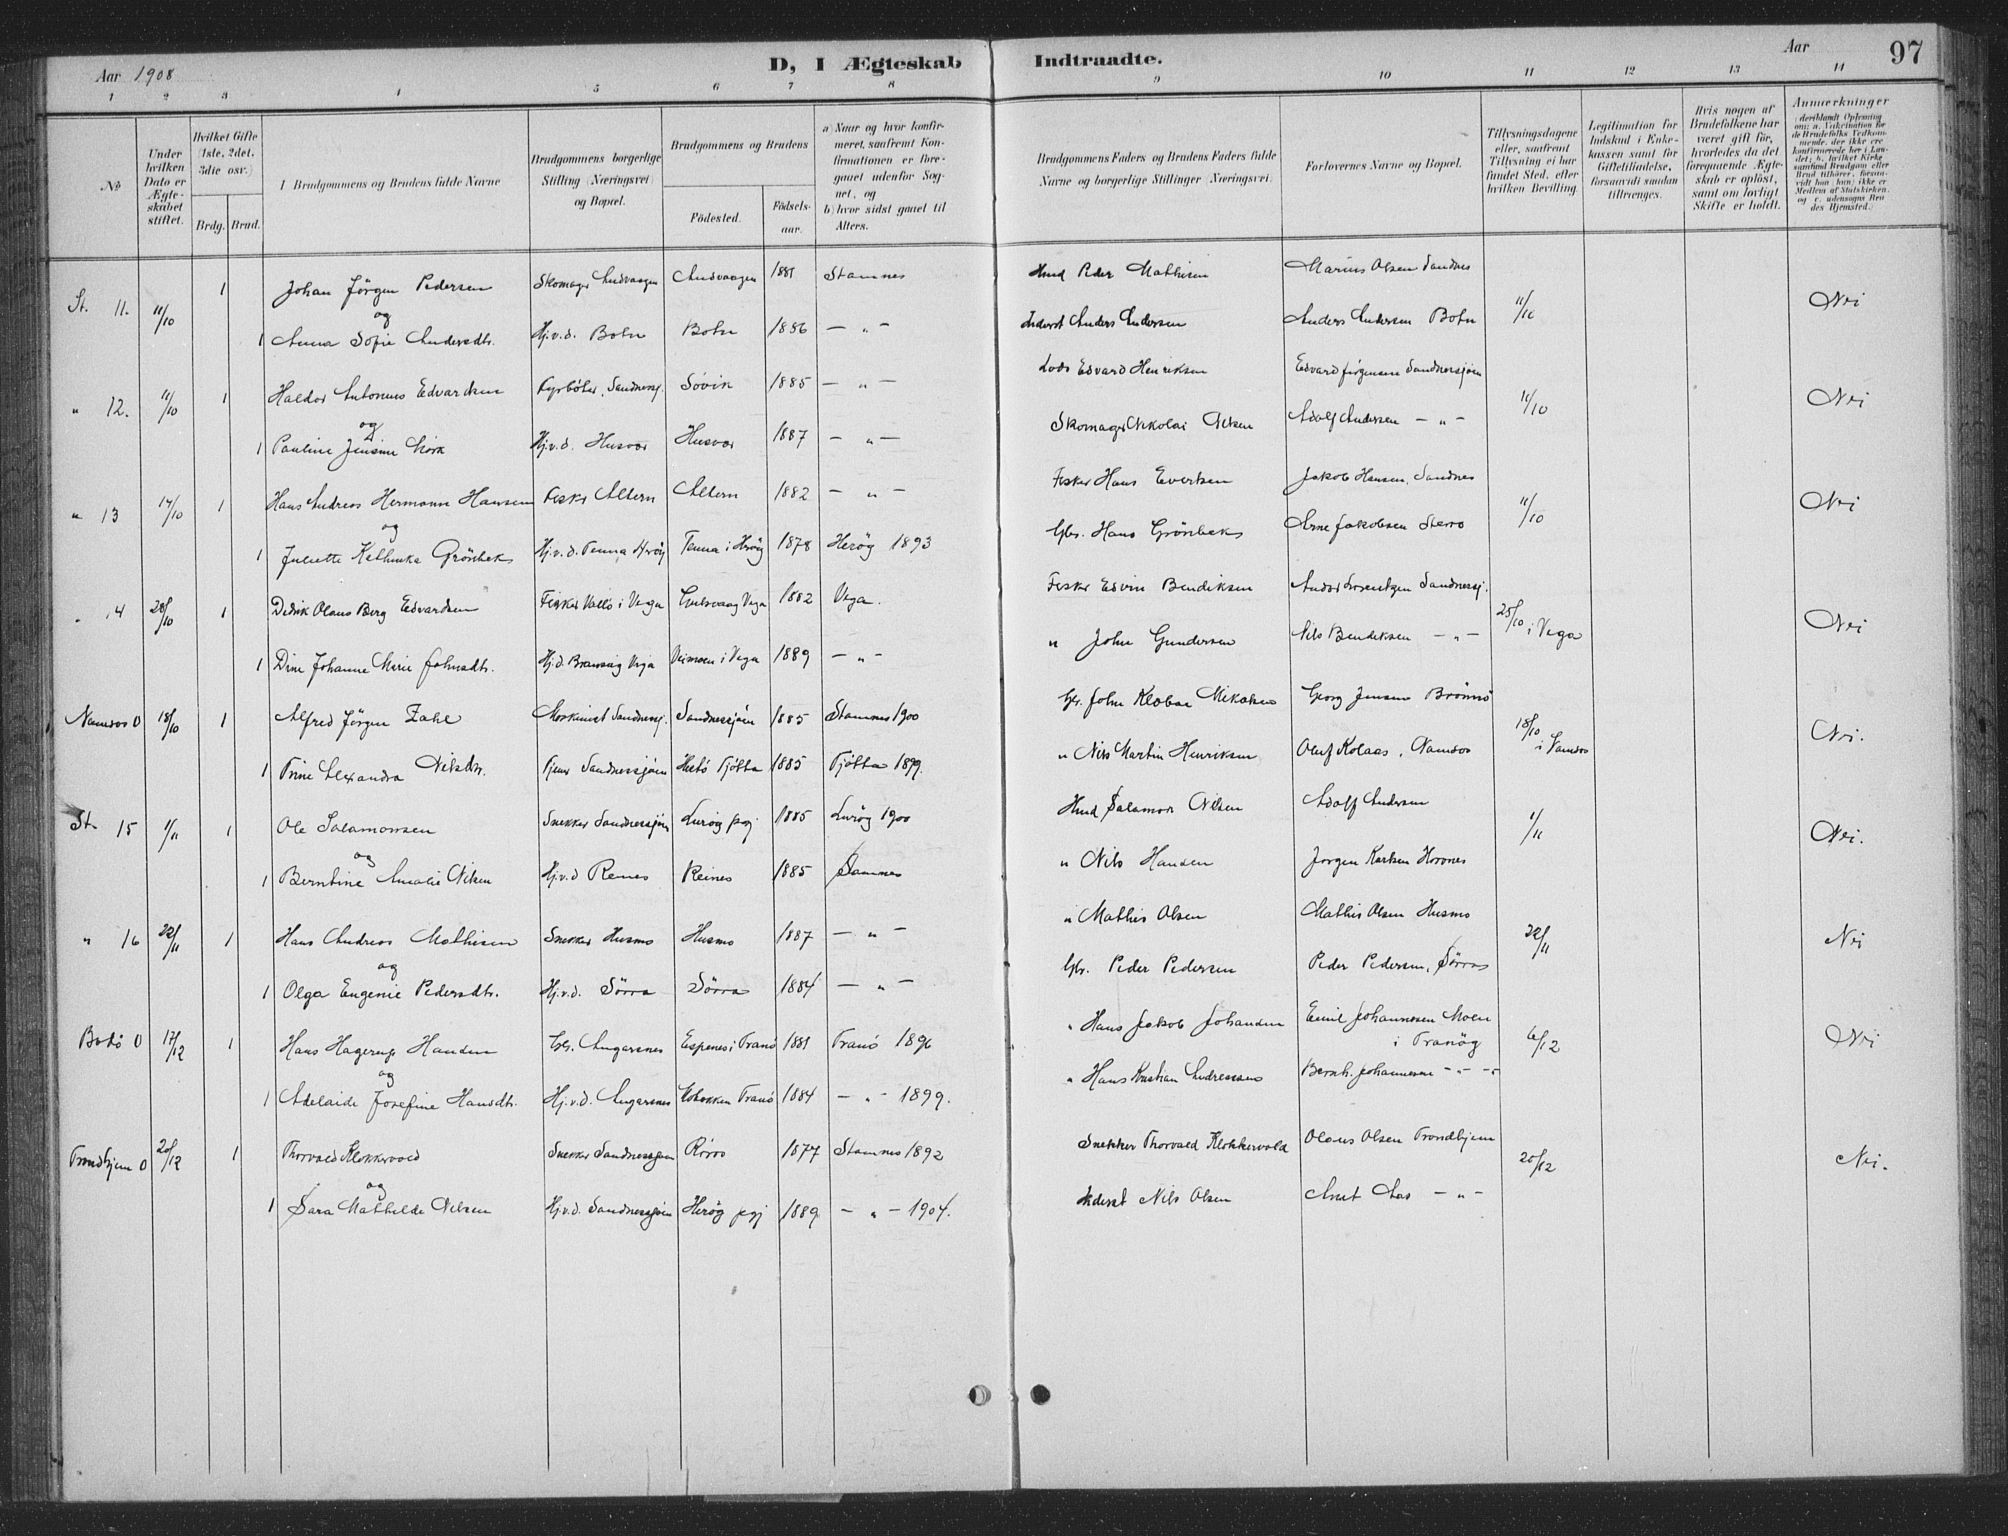 Aar 1908
D, I Ægteskab Indtraadte.
Aar
97
1 2 3 4 5 6 7 8 9 10 11 12 13 14
No
Under hvilken Dato er Ægteskabet stiftet.
Hvilket Gifte (1ste, 2det, 3die osv.)
Brdg. Brud.
I Brudgommens og Brudens fulde Navne
Brudgommens borgerlige Stilling (Næringsvei) og Bopæl.
Brudgommens og Brudens
Födested.
Födselsaar.
a) Naar og hvor konfirmeret, saafremt Konfirmationen er foregaaet udenfor Sognet, og
b) hvor sidst gaaet til Alters.
Brudgommens Faders og Brudens Faders fulde Navne og borgerlige Stillinger (Næringsvei).
Forlovernes Navne og Bopæl.
Tillysningsdagene eller, saafremt Tillysning ei har fundet Sted, efter hvilken Bevilling.
Legitimation for Indskud i Enkekassen samt for Giftetilladelse, forsaavidt saadan tiltrænges.
Hvis nogen af Brudefolkene har været gift før, hvorledes da det foregaaende Ægteskab er oplöst, samt om lovligt Skifte er holdt.
Anmærkninger
St. 11. 11/10 1 Johan Jörgen Pedersen Skomager Andvaagen Andvaagen 1881 Stamnes Hmd Peder Mathisen Marius Olsen Sandnes 11/10 Nei
og
1 Anna Sofie Andersdtr. Hj.v.d. Botn Botn 1886 — „ — Inderst Anders Andersen Anders Andersen Botn
„ 12. 11/10 1 Haldor Antonius Edvardsen Fyrböter, Sandnessj. Sövik 1885 — „ — Lods Edvard Henriksen Edvard Jörgensen Sandnessjöen 11/10 Nei
og
1 Pauline Jensine Mörk Hj.v.d. Husvær Husvær 1887 — „ — Skomager Nikolai Nilsen Adolf Andersen — „ —
„ 13 17/10 1 Hans Andreas Hermann Hansen Fisker Altern Altern 1882 — „ — Fisker Hans Evertsen Jakob Hansen, Sandnes 11/10 Nei
og
1 Juliette Kathinka Grönbek Hj.v.d. Tenna Heröy Tenna i Heröy 1878 Heröy 1893 Gbr. Hans Grönbek Arne Jakobsen
„ 14 28/10 1 Didrik Olaus Berg Edvardsen Fisker Vallö i Vega Vega 1882 Vega. Fisker Edvin Bendiksen Andor Lorentzen Sandnessj. 25/10 i Vega Nei
1 Dine Johanne Marie Johnsdtr. Hj.d. Vega i Vega 1889 — „ — „ John Gundersen Nils Bendiksen — „ —
Namsos 0 18/10 1 Alfred Jörgen Zahl Maskinist Sandnessj. Sandnessjöen 1885 Stamnes 1900 Gbr. John Klæboe Mikalsen Georg Jensen Brönnö 18/10 i Namsos Nei.
1 Trine Alexandra Nilsdtr. Tjener Sandnessjöen Tjötta 1885 Tjötta 1899. „ Nils Martin Henriksen Oluf Kolaas, Namsos
St. 15 1/11 1 Ole Salamonsen Snekker Sandnessjöen Luröy pgj 1885 Luröy 1900 Hmd Salamon Nilsen Adolf Andersen 1/11 Nei.
og
1 Berntine Amalie Nilsen Hj.v.d Reines Reines 1885 Stamnes „ Nils Hansen Jörgen Karlsen
„ 16 22/11 1 Hans Andreas Mathisen Snekker Husmo Husmo 1887 — „ — „ Mathis Olsen Mathis Olsen Husmo 22/11 Nei
og
1 Olga Eugenie Pedersdtr. Hj.v.d. Sörra Sörra 1884 — „ — Gbr. Peder Pedersen Peder Pedersen, Sörra
Bodö 0 17/12 1 Hans Hagerup Hansen Gbr. Angersnes Espenes i Tranö 1881 Tranö 1896 „ Hans Jakob Johansen Emil Johannesen Moen i Tranöy 6/12 Nei
og
1 Adelaide Josefine Hansdtr. Hj.v.d. Angersnes Tranö 1884 — „ — 1899. „ Hans Kristian Andreassen Bernh. Johannesen — „ —
Trondhjem 0 20/12 1 Thorvald Klokkervold Snekker Sandnessjöen Röros 1877 Stamnes 1892 Snekker Thorvald Klokkervold Olaus Olsen Trondhjem 20/12 Nei.
og
1 Sara Mathilde Nilsen Hj.v.d. Sandnessjöen Heröy pgj 1889. — „ — 1904. Inderst Nils Olsen Arnt Aas — „ —